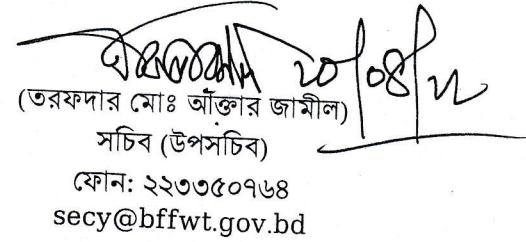 ২০/০৪/২২
(তরফদার মোঃ আক্তার জামীল)
সচিব (উপসচিব)
ফোন: ২২৩৩৫০৭৬৮
secy@bffwt.gov.bd